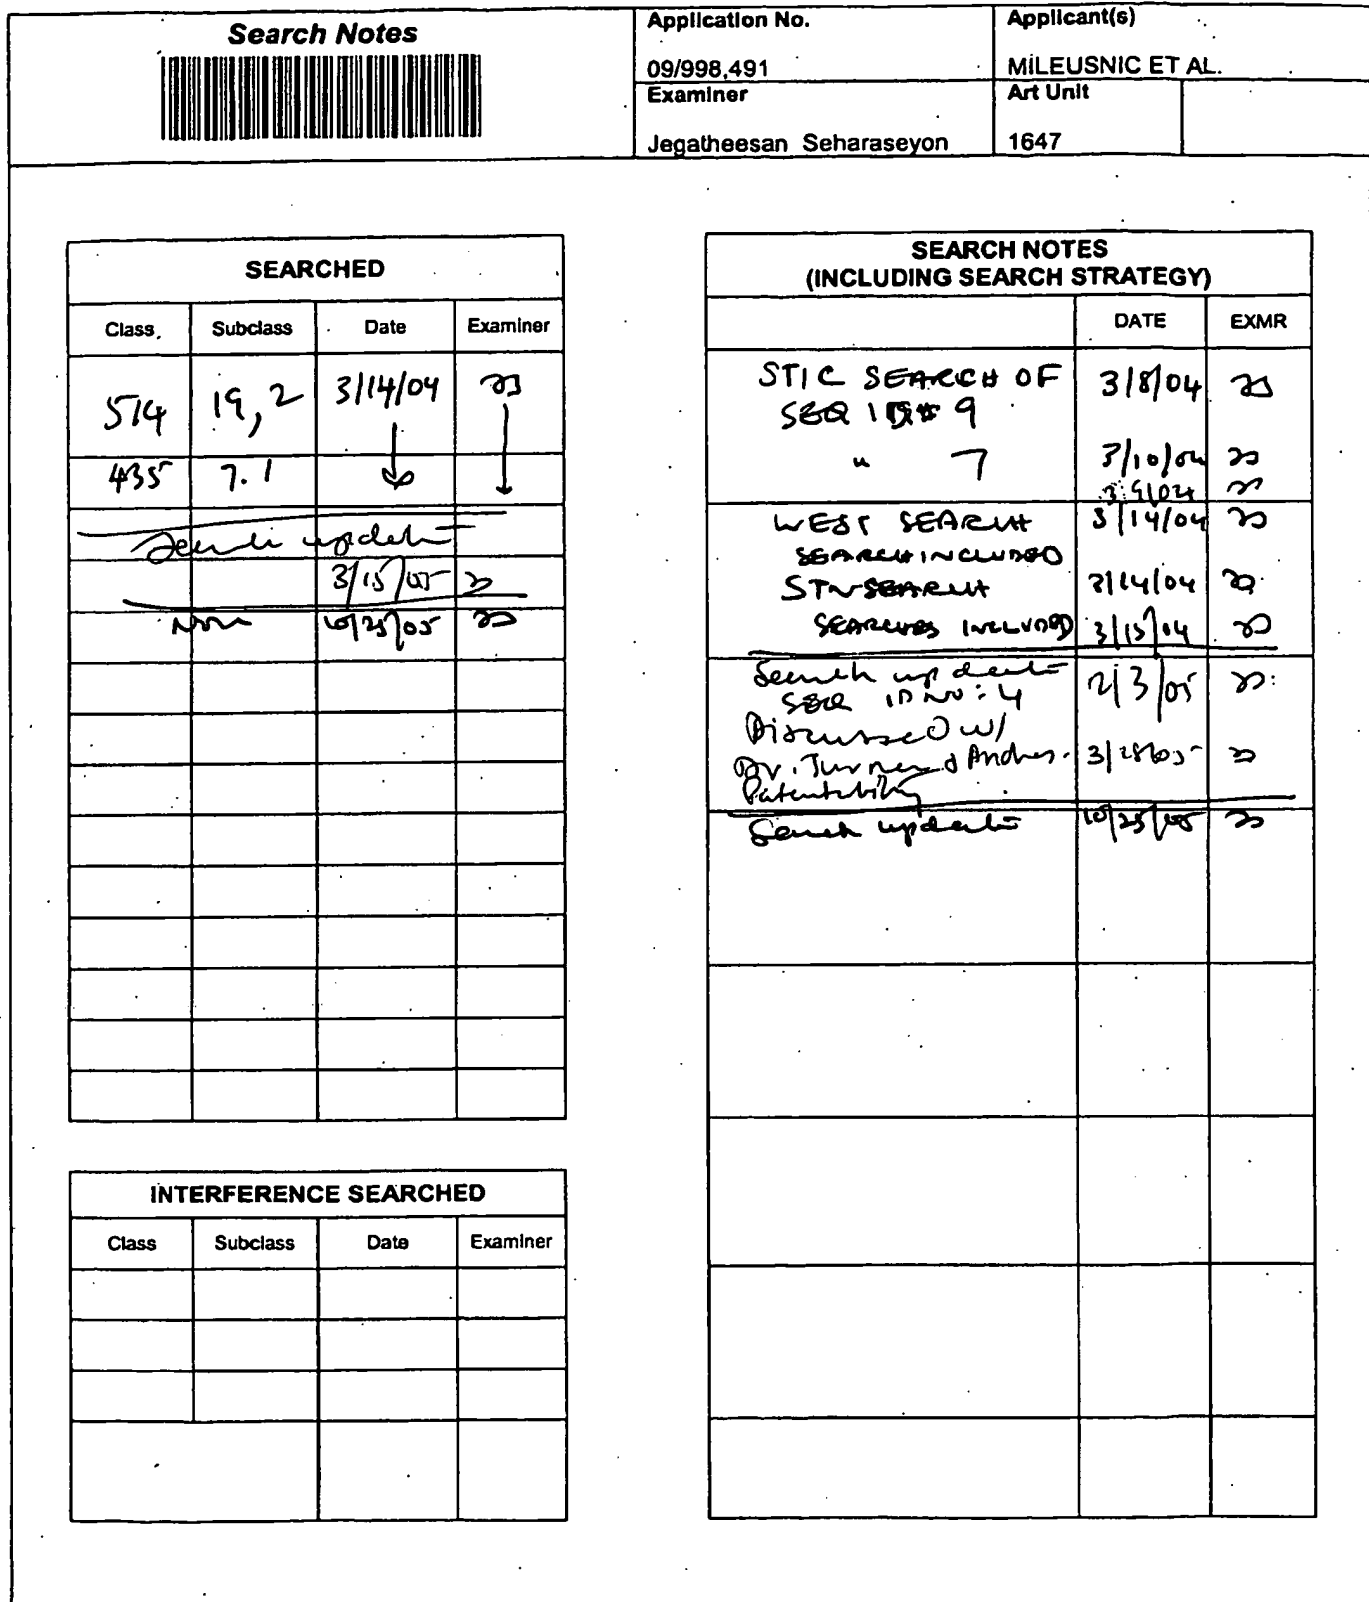 Search Notes
Application No.
09/998,491
Applicant(s)
MILEUSNIC ET AL.
Examiner
Jegatheesan Seharaseyon
Art Unit
1647
SEARCHED
Class Subclass Date Examiner
514 19, 2 3/14/04
435 7.1
Search update
3/15/05
10/25/05
INTERFERENCE SEARCHED
Class Subclass Date Examiner
SEARCH NOTES
(INCLUDING SEARCH STRATEGY)
DATE EXMR
STIC SEARCH OF 3/8/04
SEQ ID# 9
" 7 3/10/04
3/9/04
WEST SEARCH 3/14/04
SEARCH INCLUDED
STN SEARCH 3/14/04
SEARCHES INCLUDED 3/15/04
Search update 2/3/05
SEQ ID NO: 4
Discussed w/
Dr. Turner & Andres. 3/28/05
Patentability
Search update 10/25/05